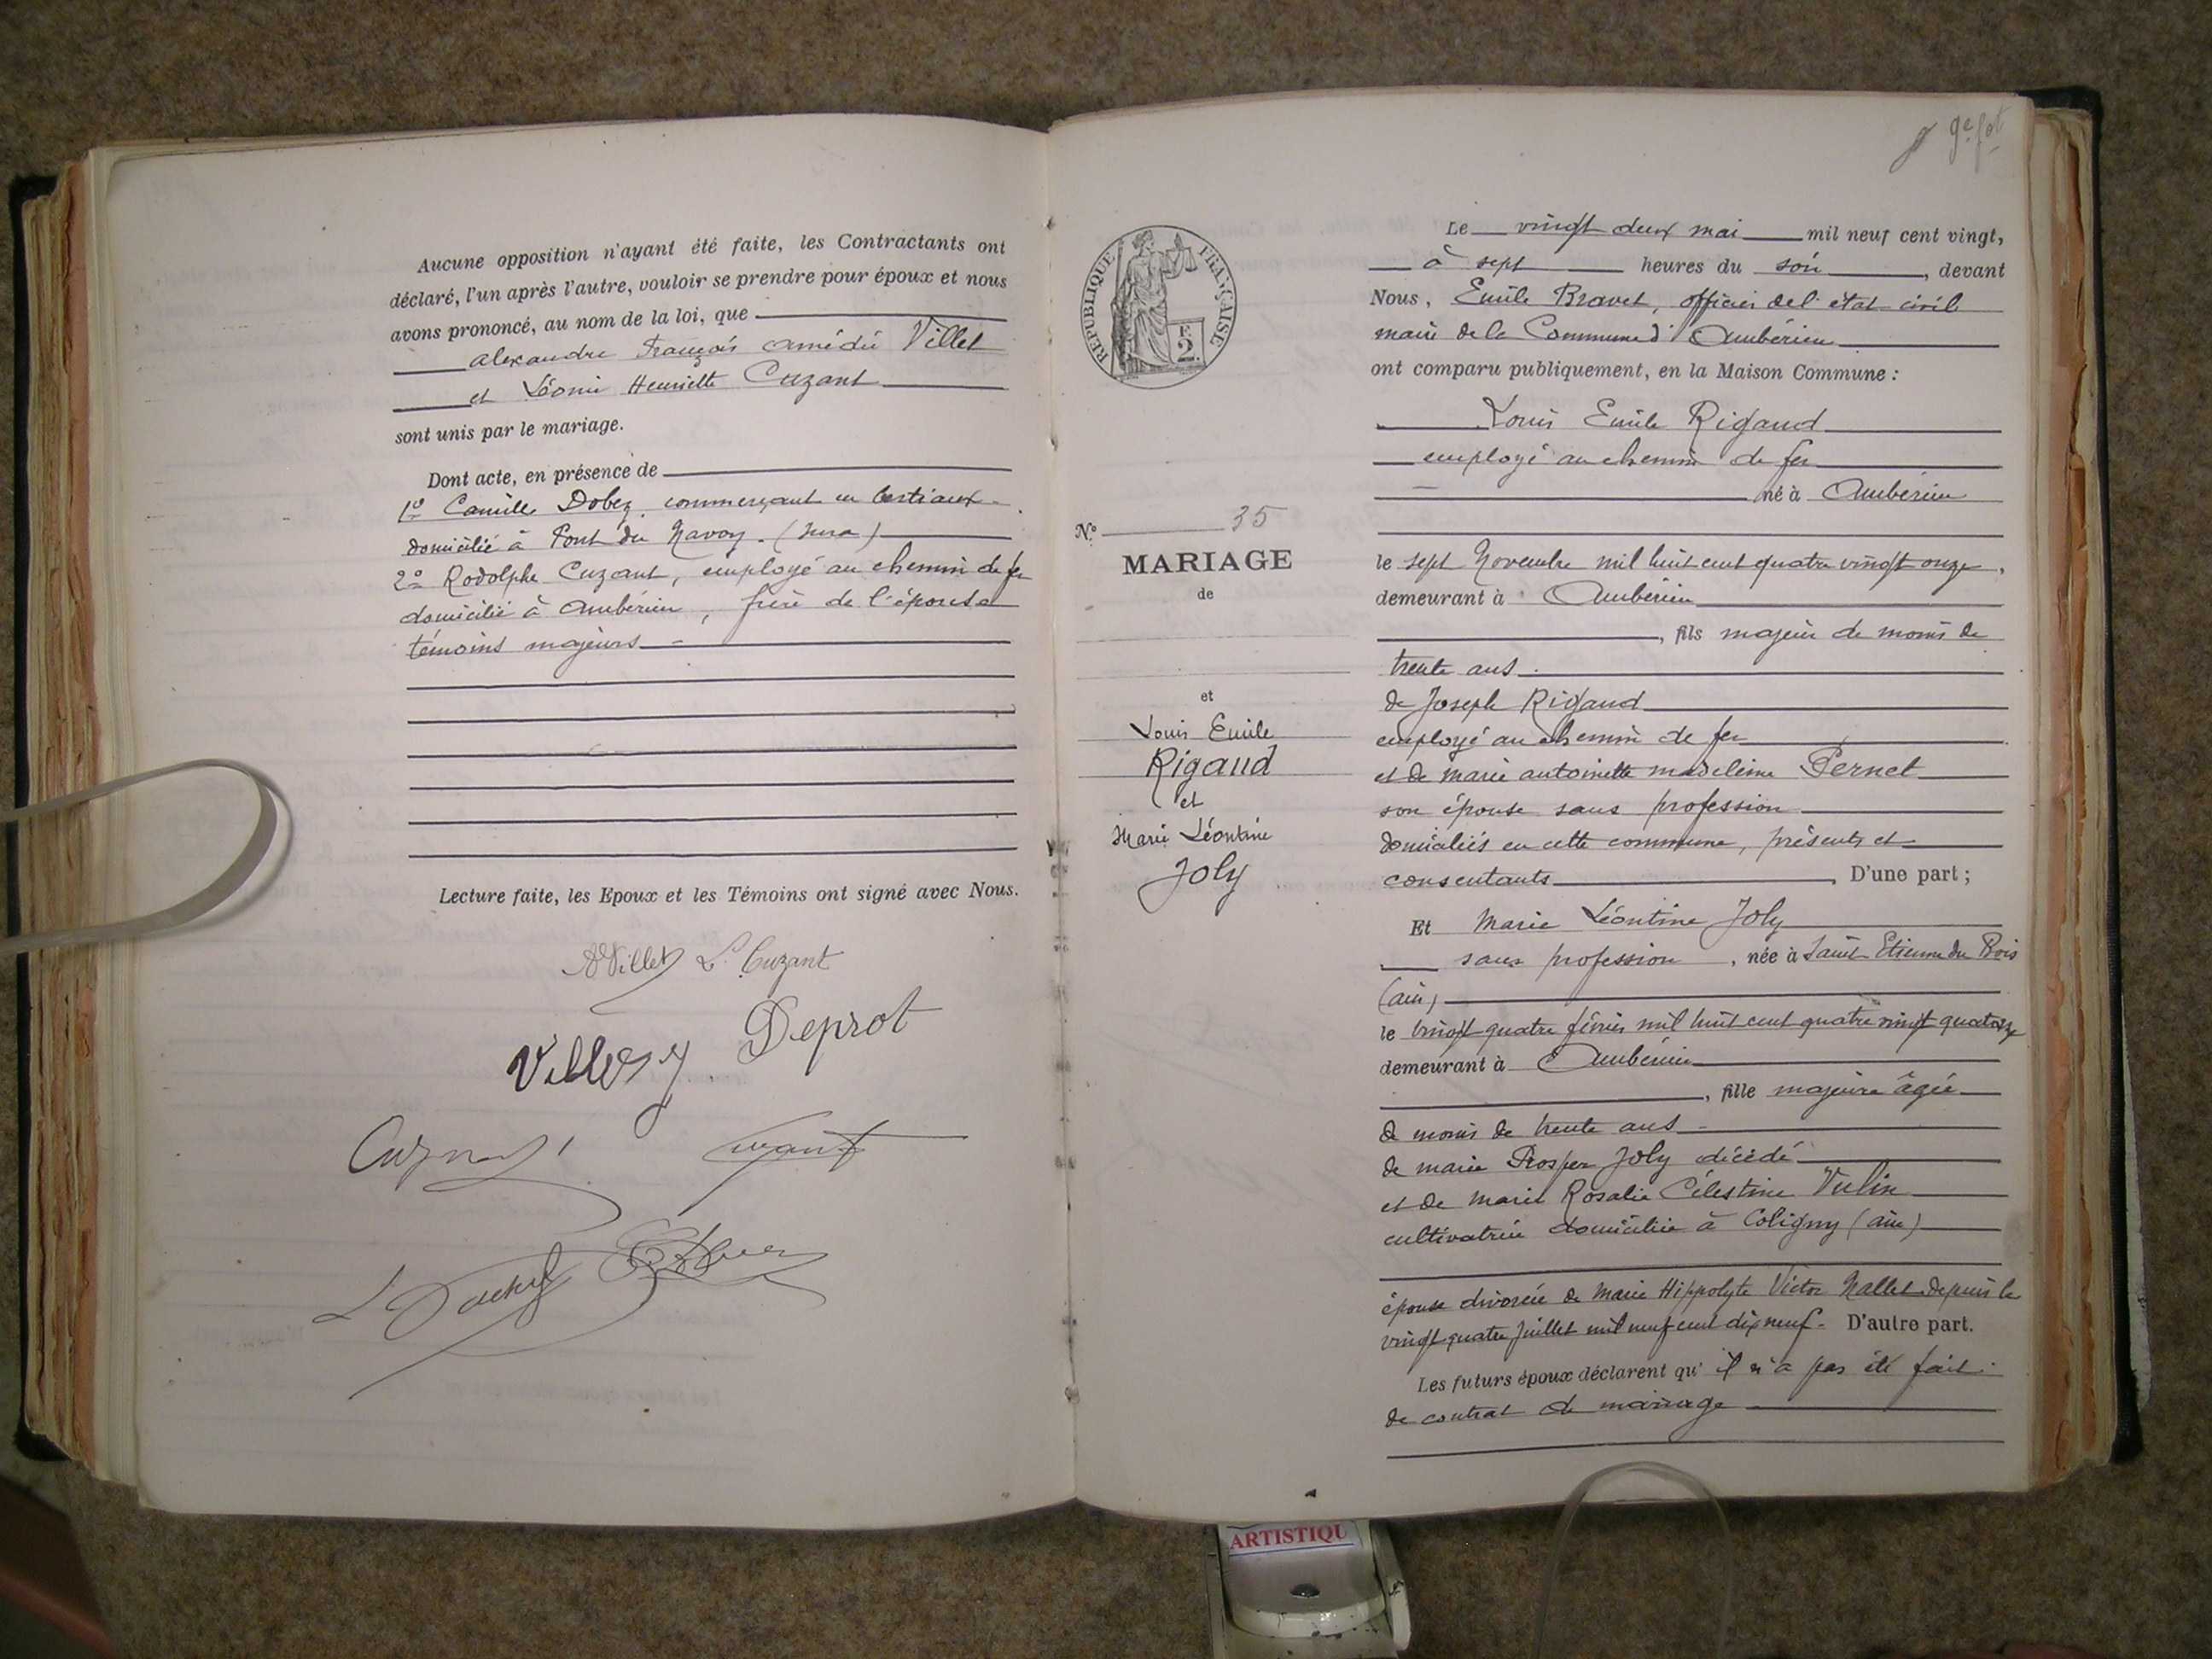 Aucune opposition n'ayant été faite, les Contractants ont
déclaré, l'un après l'autre, vouloir se prendre pour époux et nous
avons prononcé, au nom de la loi, que
alexandre François amédée Villet
et Léonie Henriette Cuzant
sont unis par le mariage.
Dont acte, en présence de
1º Camille Dobez commerçant en bestiaux
domicilié à Pont du Navoy. (Jura)
2º Rodolphe Cuzant, employé au chemin de fer
domicilié à Ambérieu, frère de l'épouse
témoins majeurs
Lecture faite, les Epoux et les Témoins ont signé avec Nous.
AVillet L. Cuzant
Deprot
RÉPUBLIQUE FRANÇAISE
F.
2.
Nº 35
MARIAGE
de
et
Louis Emile
Rigaud
et
Marie Léontine
Joly
9e fet
Le vingt deux mai mil neuf cent vingt,
à sept heures du soir, devant
Nous, Emile Bravet, officier de l'état civil
maire de la Commune d'Ambérieu
ont comparu publiquement, en la Maison Commune :
Louis Emile Rigaud
employé au chemin de fer
né à Ambérieu
le sept Novembre mil huit cent quatre vingt onze,
demeurant à Ambérieu
, fils majeur de moins de
trente ans.
de Joseph Rigaud
employé au chemin de fer
et de marie antoinette madeleine Pernet
son épouse sans profession
domiciliés en cette commune, présents et
consentants, D'une part ;
Et Marie Léontine Joly
sans profession, née à Saint Etienne du Bois
(ain)
le vingt quatre février mil huit cent quatre vingt quatorze
demeurant à Ambérieu
, fille majeure âgée
de moins de trente ans
de marie Prosper Joly décédé
et de Marie Rosalie Célestine Vulin
cultivatrice domiciliée à Coligny (ain)
épouse divorcée de Marie Hippolyte Victor Nallet depuis le
vingt quatre Juillet mil neuf cent dix neuf. D'autre part.
Les futurs époux déclarent qu'il n'a pas été fait
de contrat de mariage
ARTISTIQU